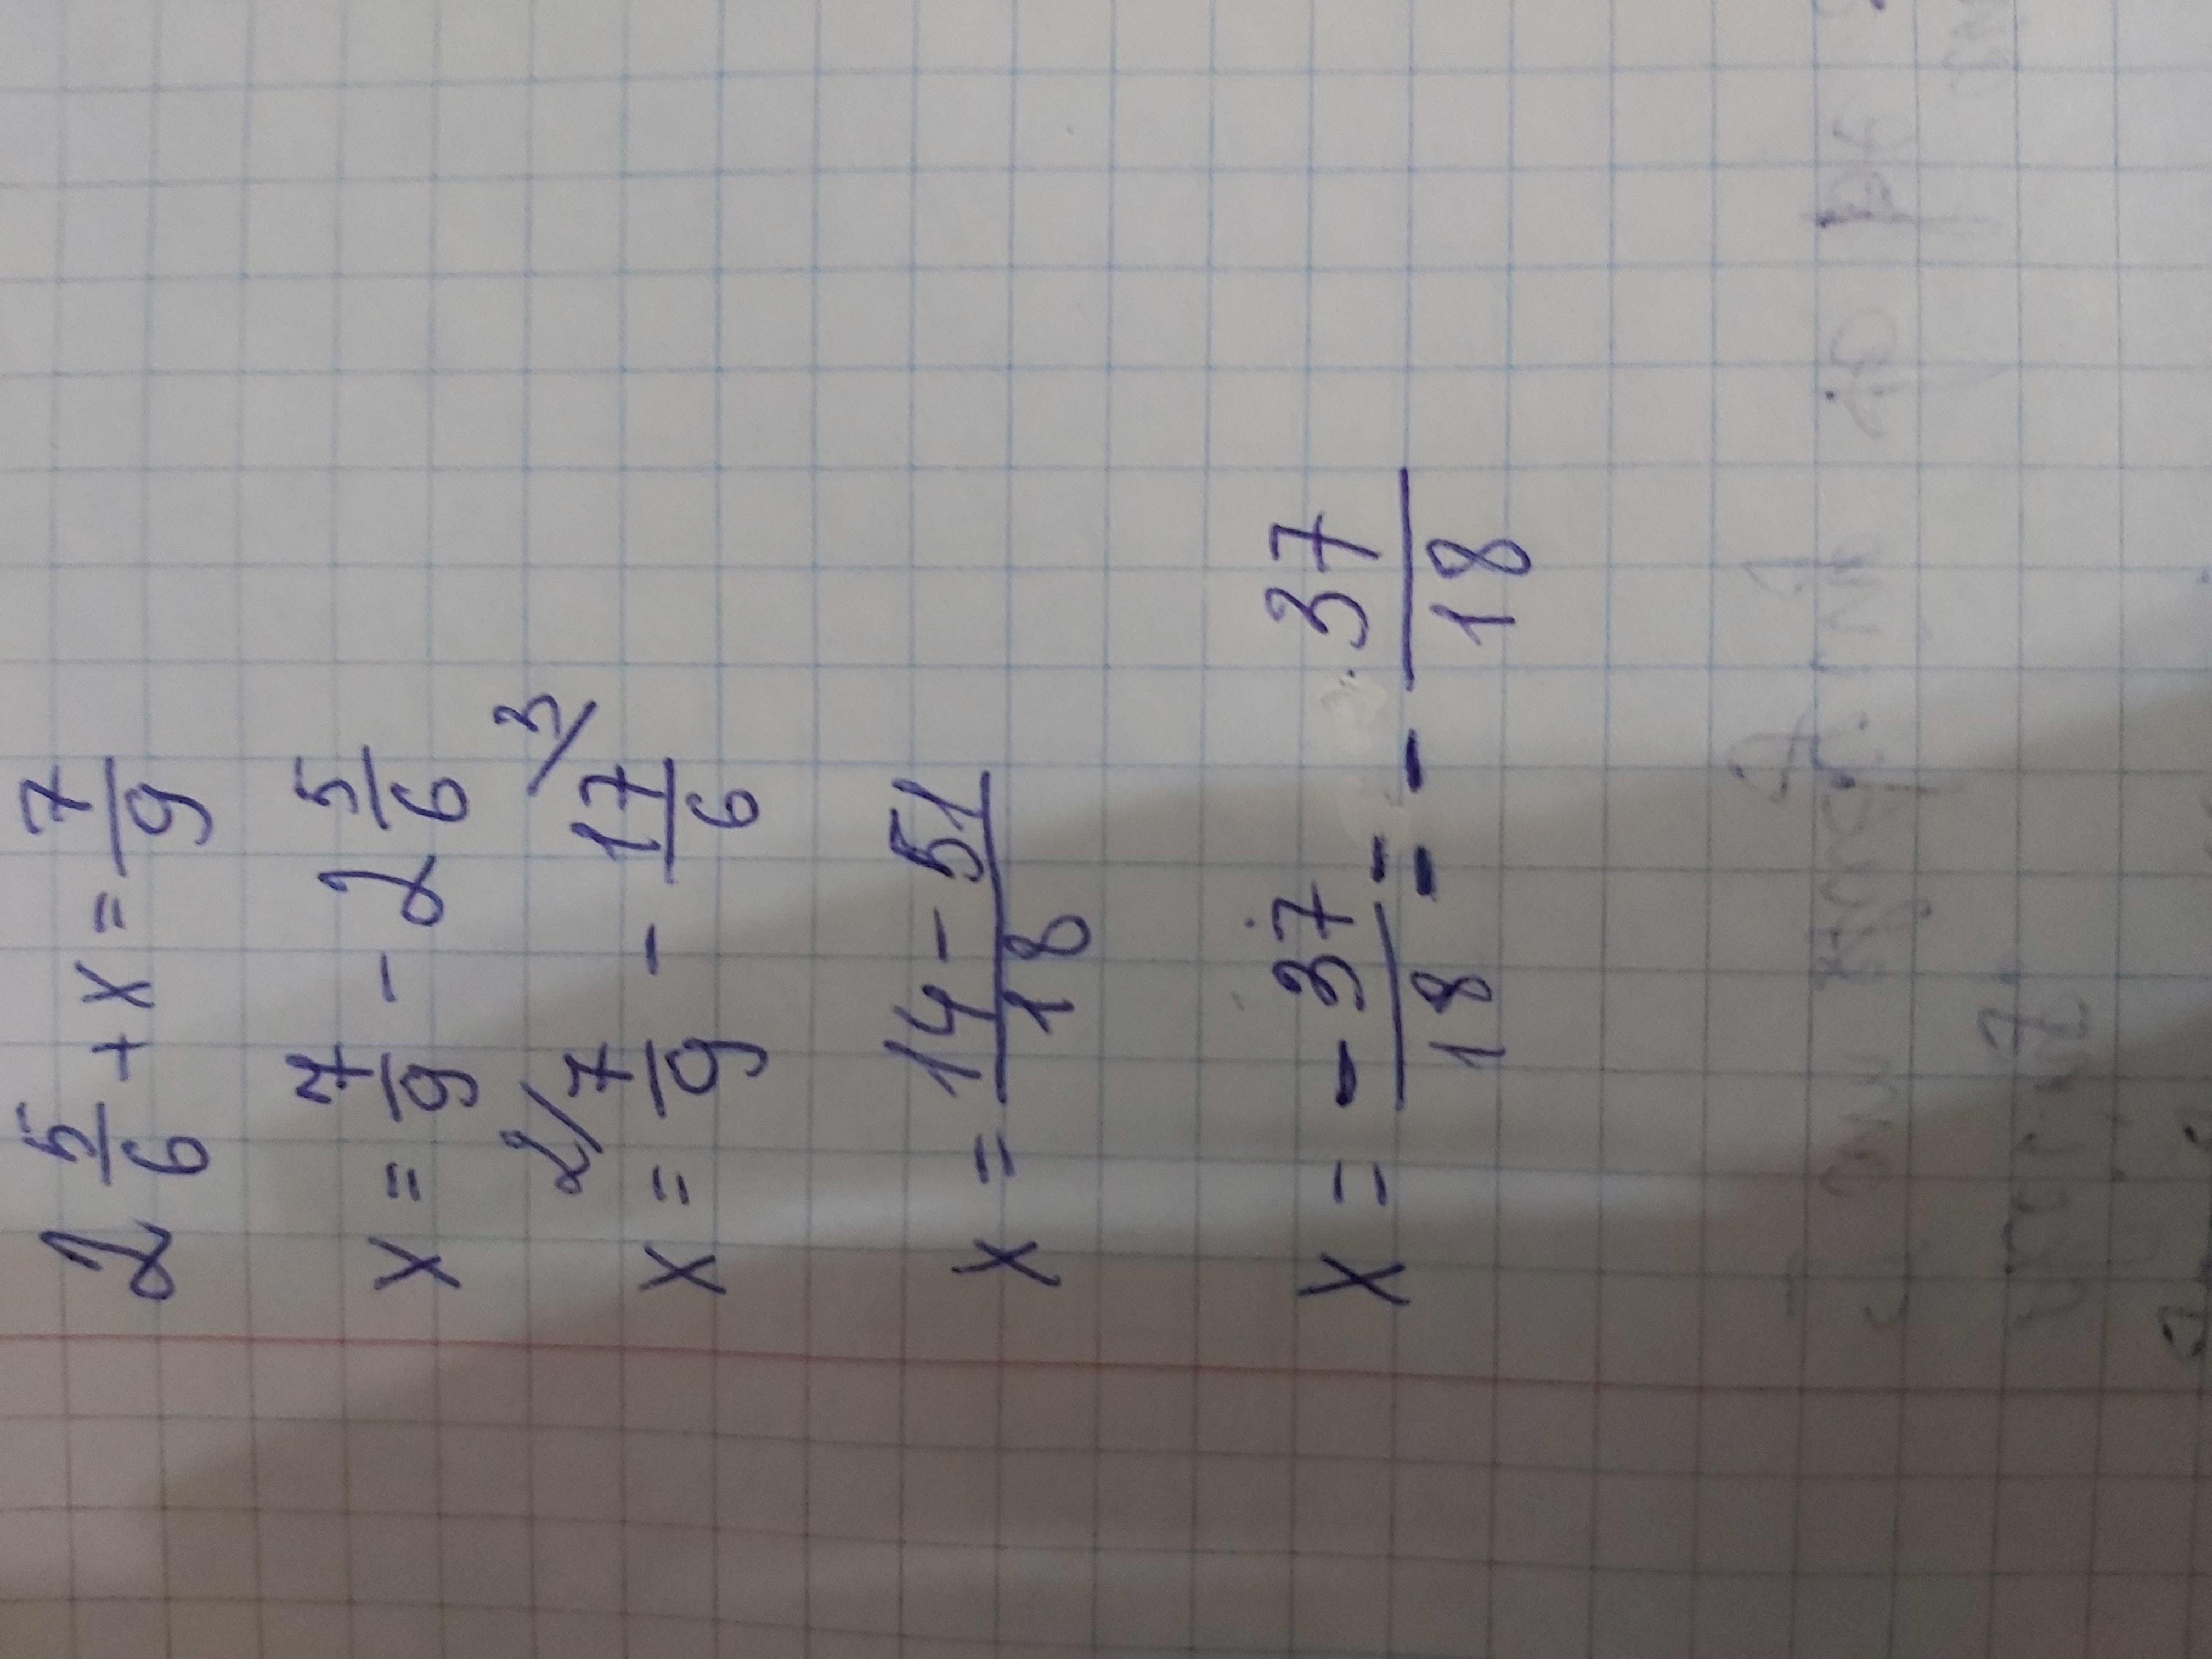 2 5/6 + x = 7/9
x = 7/9 - 2 5/6
x = 2/ 7/9 - 17/6 3/
x = 14 - 51/18
x = -37/18 = - 37/18